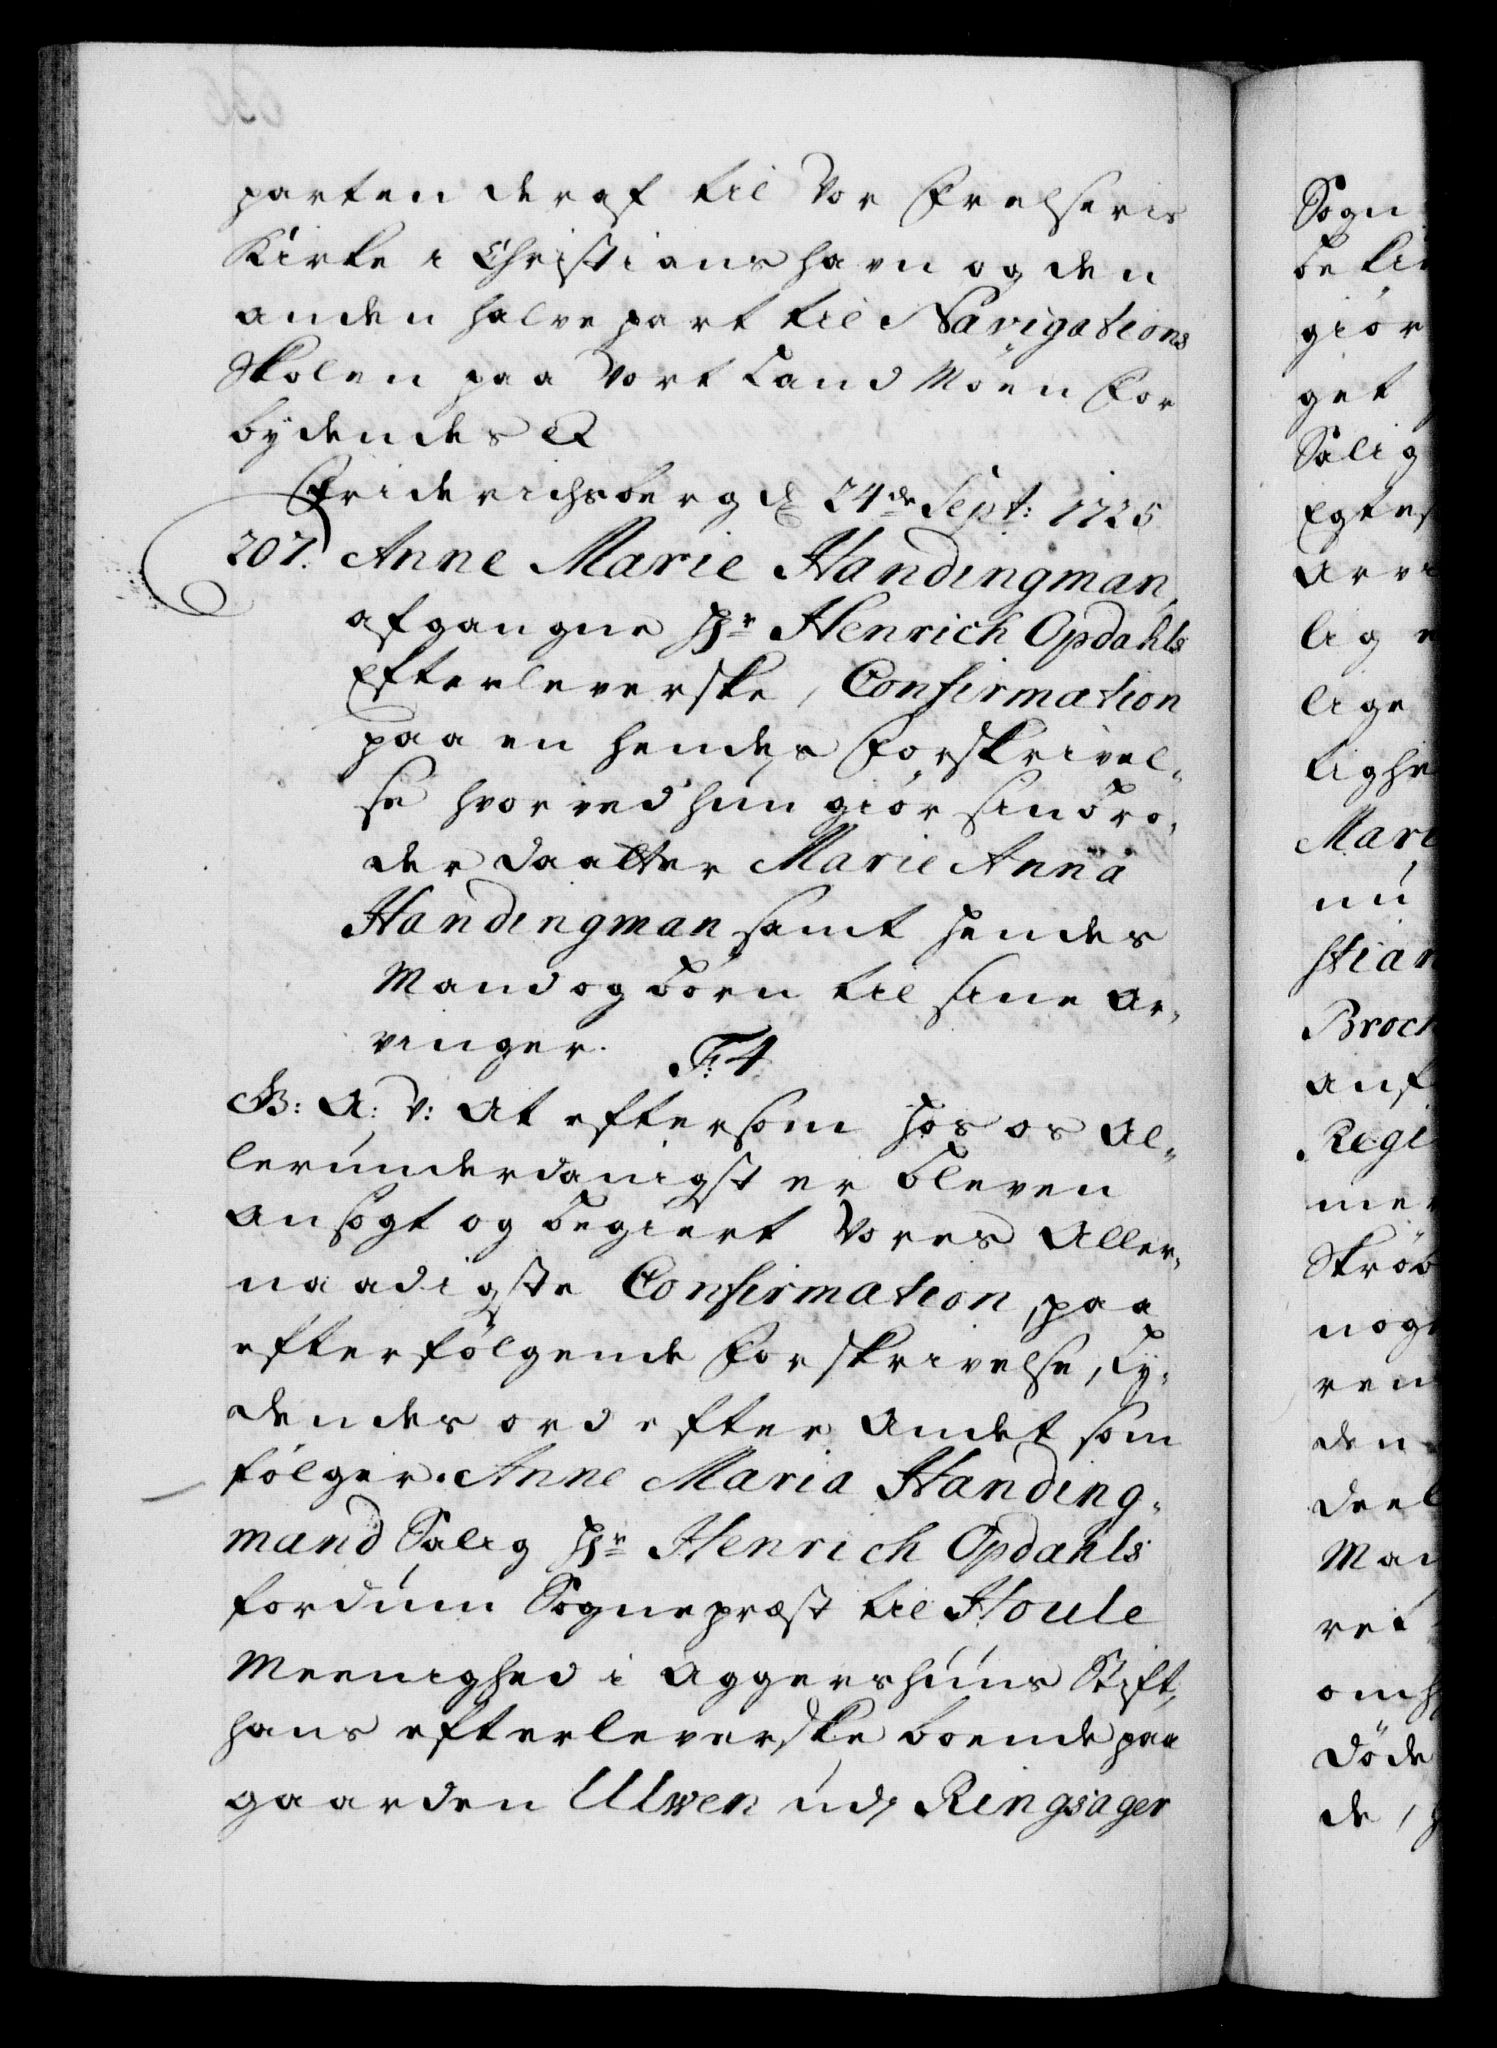 parten deraf til Vor Frelseris
Kirke i Christians havn og den
anden halve part til Navigations
Skolen paa Vort Land Møen For
bydendes &
Friderichsberg d 24de Sept: 1725
207. Anne Marie Handingman,
afgangne Hr Henrich Opdahls
Efterleverske, Confirmation
paa en hendes Forskrivel-
se hvorved hun giør sin Bro-
der daatter Marie Anna
Handingman samt hendes
Mand og børn til sine Ar-
vinger. F: 4
G: A: V: At eftersom hos os Al-
lerunderdanigst er bleven
ansøgt og begiert Vores Aller-
naadigste Confirmation, paa
efterfølgende Forskrivelse, Ly-
dendes ord efter andet som
følger. Anne Maria Handing-
mand Salig Hr Henrich Opdahls
fordum Sognepræst til Houle
Meenighed i Aggershuus Stift,
hans efterleverske boende paa
gaarden Ulwen udj Ringsager
Sogn
giør
get
Salig
lig
lige
Mari
nu
stian
Broch
Regi
ren
den
deel
ret
døde
de,